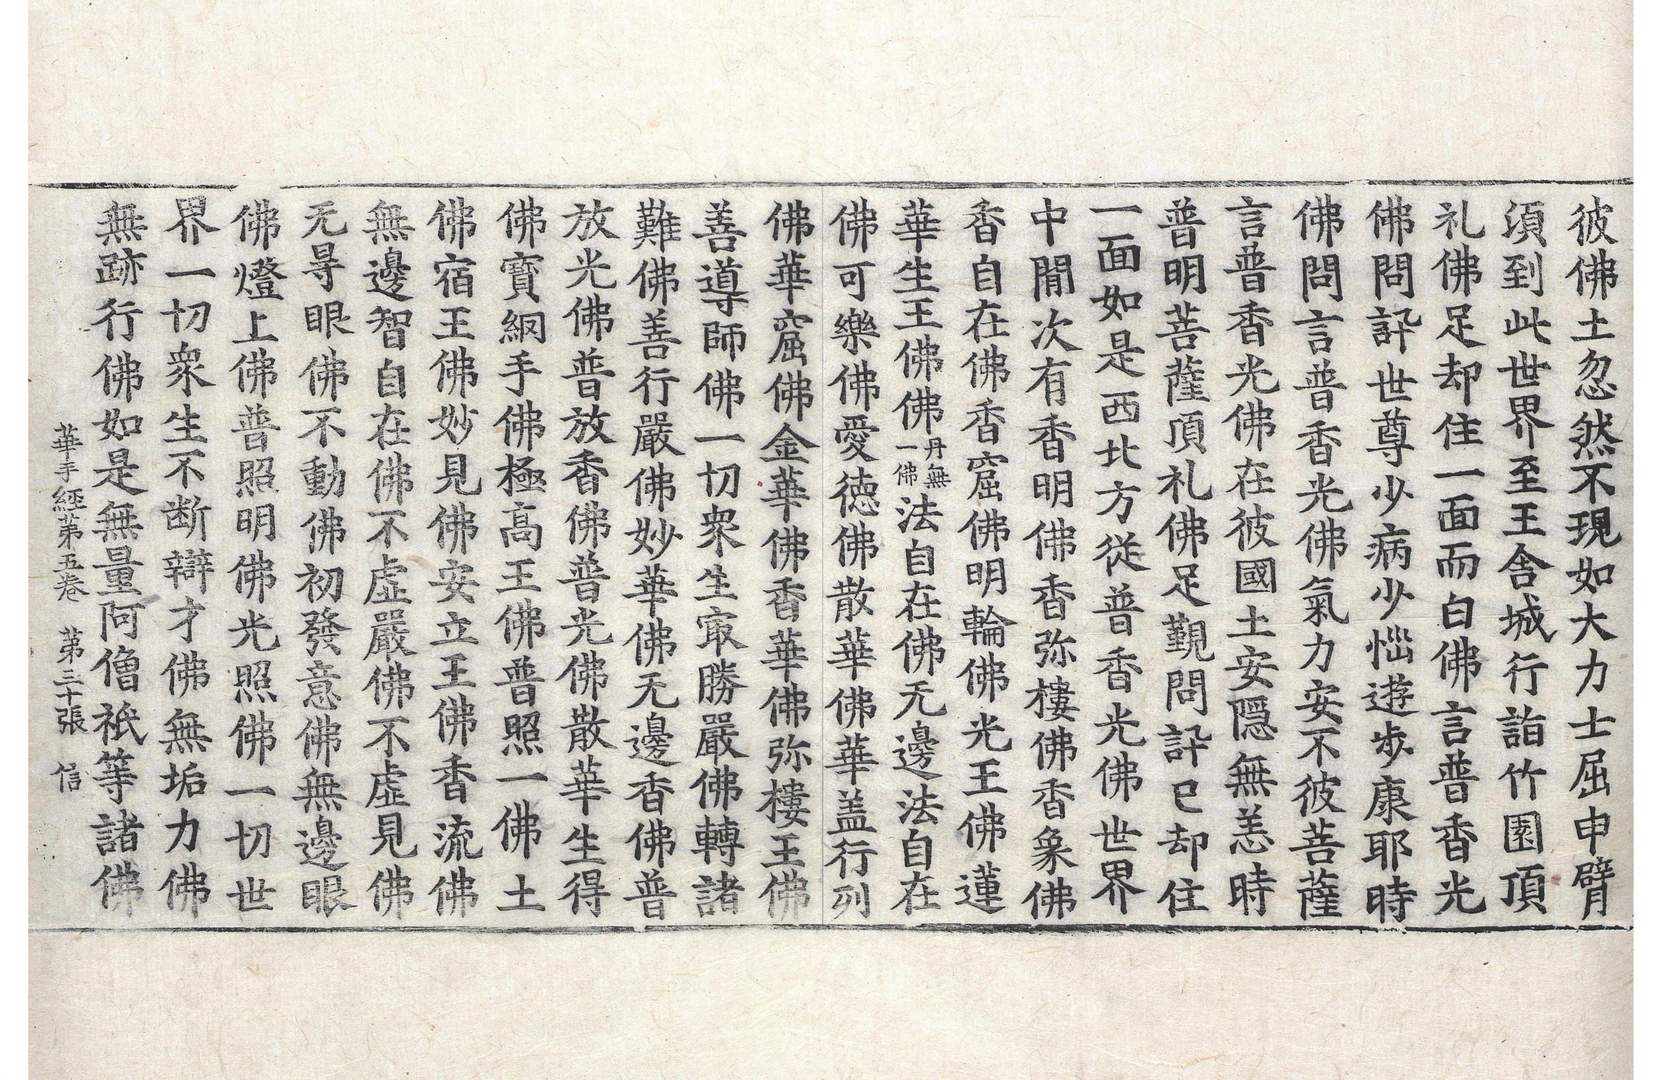 彼佛土忽然不現如大力士屈申臂
湏到此世界至王舍城行詣竹園頂
礼佛足却住一面而白佛言普香光
佛問訊世尊少病少惱遊步康耶時
佛問言普香光佛氣力安不彼菩薩
言普香光佛在彼國土安隱無恙時
普明菩薩頂礼佛足覲問訊已却住
一面如是西北方從普香光佛世界
中閒次有香明佛香弥樓佛香象佛
香自在佛香窟佛明輪佛光王佛蓮
華生王佛佛丹無一佛法自在佛无邊法自在
佛可樂佛愛德佛散華佛華盖行列
佛華窟佛金華佛香華佛弥樓王佛
善導師佛一切衆生㝡勝嚴佛轉諸
難佛善行嚴佛妙華佛无邊香佛普
放光佛普放香佛普光佛散華生得
佛寶網手佛極高王佛普照一佛土
佛宿王佛妙見佛安立王佛香流佛
無邊智自在佛不虛嚴佛不虛見佛
无㝵眼佛不動佛初發意佛無邊眼
佛燈上佛普照明佛光照佛一切世
界一切衆生不断辯才佛無垢力佛
無跡行佛如是無量阿僧祇等諸佛
華手經第五卷 第三十張 信